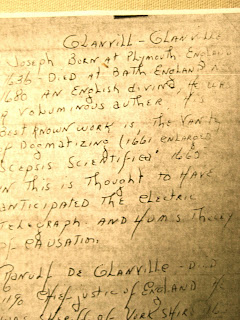 GLANVILL - GLANVILLE
JOSEPH BORN AT PLYMOUTH ENGLAND
1636 - DIED AT BATH ENGLAND
1680 AN ENGLISH DIVINE, HE WAS
A VOLUMINOUS AUTHER, IT'S
BEST KNOWN WORK IS THE VANITY
OF DOGMATIZING (1661 ENLARGED
SCEPSIS SCIENTIFICA, 1665
IN THIS IS THOUGHT TO HAVE
ANTICIPATED THE ELECTRIC
TELEGRAPH. AND HUM'S THEORY
OF CAUSATION.
RANULF DE GLANVILLE - DIED
1190 CHIEF JUSTIC OF ENGLAND
WAS SHERIFF OF YORKSHIRE